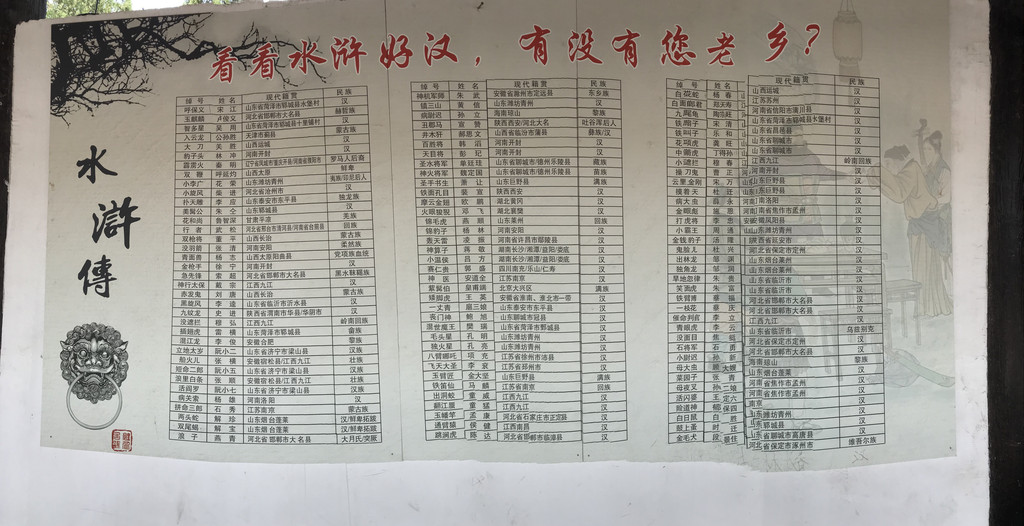 看看水浒好汉，有没有您老乡？
水浒傳
绰号 姓名 现代籍贯 民族
呼保义 宋江 山东省菏泽市郓城县水堡村 汉
玉麒麟 卢俊义 河北省邯郸市大名县 赫哲族
智多星 吴用 山东省菏泽市郓城县十里铺村 汉
入云龙 公孙胜 天津市蓟县 蒙古族
大刀 关胜 山西运城 汉
豹子头 林冲 河南开封 汉
霹雳火 秦明 罗马人后裔
双鞭 呼延灼 山西太原 鲜卑
小李广 花荣 山东潍坊青州 夷族/印尼后人
小旋风 柴进 河北省沧州市 汉
扑天雕 李应 山东泰安市东平县 独龙族
美髯公 朱仝 山东郓城县 汉
花和尚 鲁智深 甘肃平凉 羌族
行者 武松 河北省邢台市清河县/河南省台前县 回族
双枪将 董平 山西长治 蒙古族
没羽箭 张清 河南安阳 柔然族
青面兽 杨志 山西太原阳曲县 党项族血统
金枪手 徐宁 河南开封 汉
急先锋 索超 河北省邯郸市大名县 黑水靺鞨族
神行太保 戴宗 江西九江 汉
赤发鬼 刘唐 山西长治 蒙古族
黑旋风 李逵 山东省临沂市沂水县 汉
九纹龙 史进 陕西省渭南市华县/华阴市 汉
没遮拦 穆弘 江西九江 岭南回族
插翅虎 雷横 山东菏泽市郓城县 畲族
混江龙 李俊 安徽合肥 黎族
立地太岁 阮小二 山东省济宁市梁山县 汉族
船火儿 张横 安徽宿松县/江西九江 壮族
短命二郎 阮小五 山东省济宁市梁山县 汉族
浪里白条 张顺 安徽宿松县/江西九江 壮族
活阎罗 阮小七 山东省济宁市梁山县 汉族
病关索 杨雄 河南洛阳 汉
拼命三郎 石秀 江苏南京 蒙古族
两头蛇 解珍 山东烟台蓬莱 汉/鲜卑拓跋
双尾蝎 解宝 山东烟台蓬莱 汉/鲜卑拓跋
浪子 燕青 河北省邯郸市大名县 大月氏/突厥
绰号 姓名 现代籍贯 民族
神机军师 朱武 安徽省滁州市定远县 东乡族
镇三山 黄信 山东潍坊青州 汉
病尉迟 孙立 海南琼山 黎族
丑郡马 宣赞 陕西西安/河北大名 吐谷浑后人
井木犴 郝思文 山西省临汾市蒲县 彝族/汉
百胜将 韩滔 河南开封 汉
天目将 彭玘 河南开封 汉
圣水将军 单廷珪 山东省聊城市/德州乐陵县 藏族
神火将军 魏定国 山东省聊城市/德州乐陵县 苗族
圣手书生 萧让 山东巨野县 满族
铁面孔目 裴宣 陕西西安 汉
摩云金翅 欧鹏 湖北黄冈 汉
火眼狻猊 邓飞 湖北襄樊 汉
锦毛虎 燕顺 山东莱州 回族
锦豹子 杨林 河南安阳 汉
轰天雷 凌振 河南省许昌市鄢陵县 汉
神算子 蒋敬 湖南长沙/湘潭/益阳/娄底 汉
小温侯 吕方 湖南长沙/湘潭/益阳/娄底 汉
赛仁贵 郭盛 四川南充/乐山/仁寿 汉
神医 安道全 江苏南京 汉
紫髯伯 皇甫端 北京大兴区 满族
矮脚虎 王英 安徽省淮南、淮北市一带 汉
一丈青 扈三娘 山东泰安市东平县 汉
丧门神 鲍旭 山东聊城市冠县 汉
混世魔王 樊瑞 山东省菏泽市郓城县 汉
毛头星 孔明 山东潍坊青州 汉
独火星 孔亮 山东潍坊青州 汉
八臂哪吒 项充 江苏省徐州市沛县 汉
飞天大圣 李衮 江苏省邳州市 汉
玉臂匠 金大坚 山东巨野县 满族
铁笛仙 马麟 江苏省南京 回族
出洞蛟 童威 江西九江 汉
翻江蜃 童猛 江西九江 汉
玉幡竿 孟康 河北省石家庄市正定县 汉
通臂猿 侯健 江西南昌 汉
跳涧虎 陈达 河北省邯郸市临漳县 汉
绰号 姓名 现代籍贯 民族
白花蛇 杨春 山西运城 汉
白面郎君 郑天寿 江苏苏州 汉
九尾龟 陶宗旺 河南省信阳市潢川县 汉
铁扇子 宋清 山东省菏泽市郓城县水堡村 汉
铁叫子 乐和 山东省昌邑县 汉
花项虎 龚旺 山东省聊城市 汉
中箭虎 丁得孙 山东省聊城市 汉
小遮拦 穆春 江西九江 岭南回族
操刀鬼 曹正 河南开封 汉
云里金刚 宋万 山东巨野县 汉
摸着天 杜迁 山东巨野县 汉
病大虫 薛永 河南南洛阳 汉
金眼彪 施恩 河南省焦作市孟州 汉
打虎将 李忠 安徽砀风阳县 汉
小霸王 周通 山东潍坊青州 汉
金钱豹子 汤隆 陕西省延安市 汉
鬼脸儿 杜兴 河南安阳 汉
出林龙 邹渊 山东烟台莱州 汉
独角龙 邹润 山东烟台莱州 汉
旱地忽律 朱贵 山东省临沂市 汉
笑面虎 朱富 山东省临沂市 汉
铁臂膊 蔡福 河北省邯郸市大名县 汉
一枝花 蔡庆 河北省邯郸市大名县 汉
催命判官 李立 江西九江 汉
青眼虎 李云 山东省临沂市 乌兹别克
没面目 焦挺 河北省保定市定州 汉
石将军 石勇 河北省邯郸市大名县 汉
小尉迟 孙新 海南琼山 黎族
母大虫 顾大嫂 山东烟台蓬莱 汉
菜园子 张青 河南省焦作市孟州 汉
母夜叉 孙二娘 河南省焦作市孟州 汉
活闪婆 王定六 南京 汉
险道神 郁保四 山东潍坊青州 汉
白日鼠 白胜 山东郓城县 汉
鼓上蚤 时迁 山东省聊城市高唐县 汉
金毛犬 段景住 河北省保定市涿州市 维吾尔族